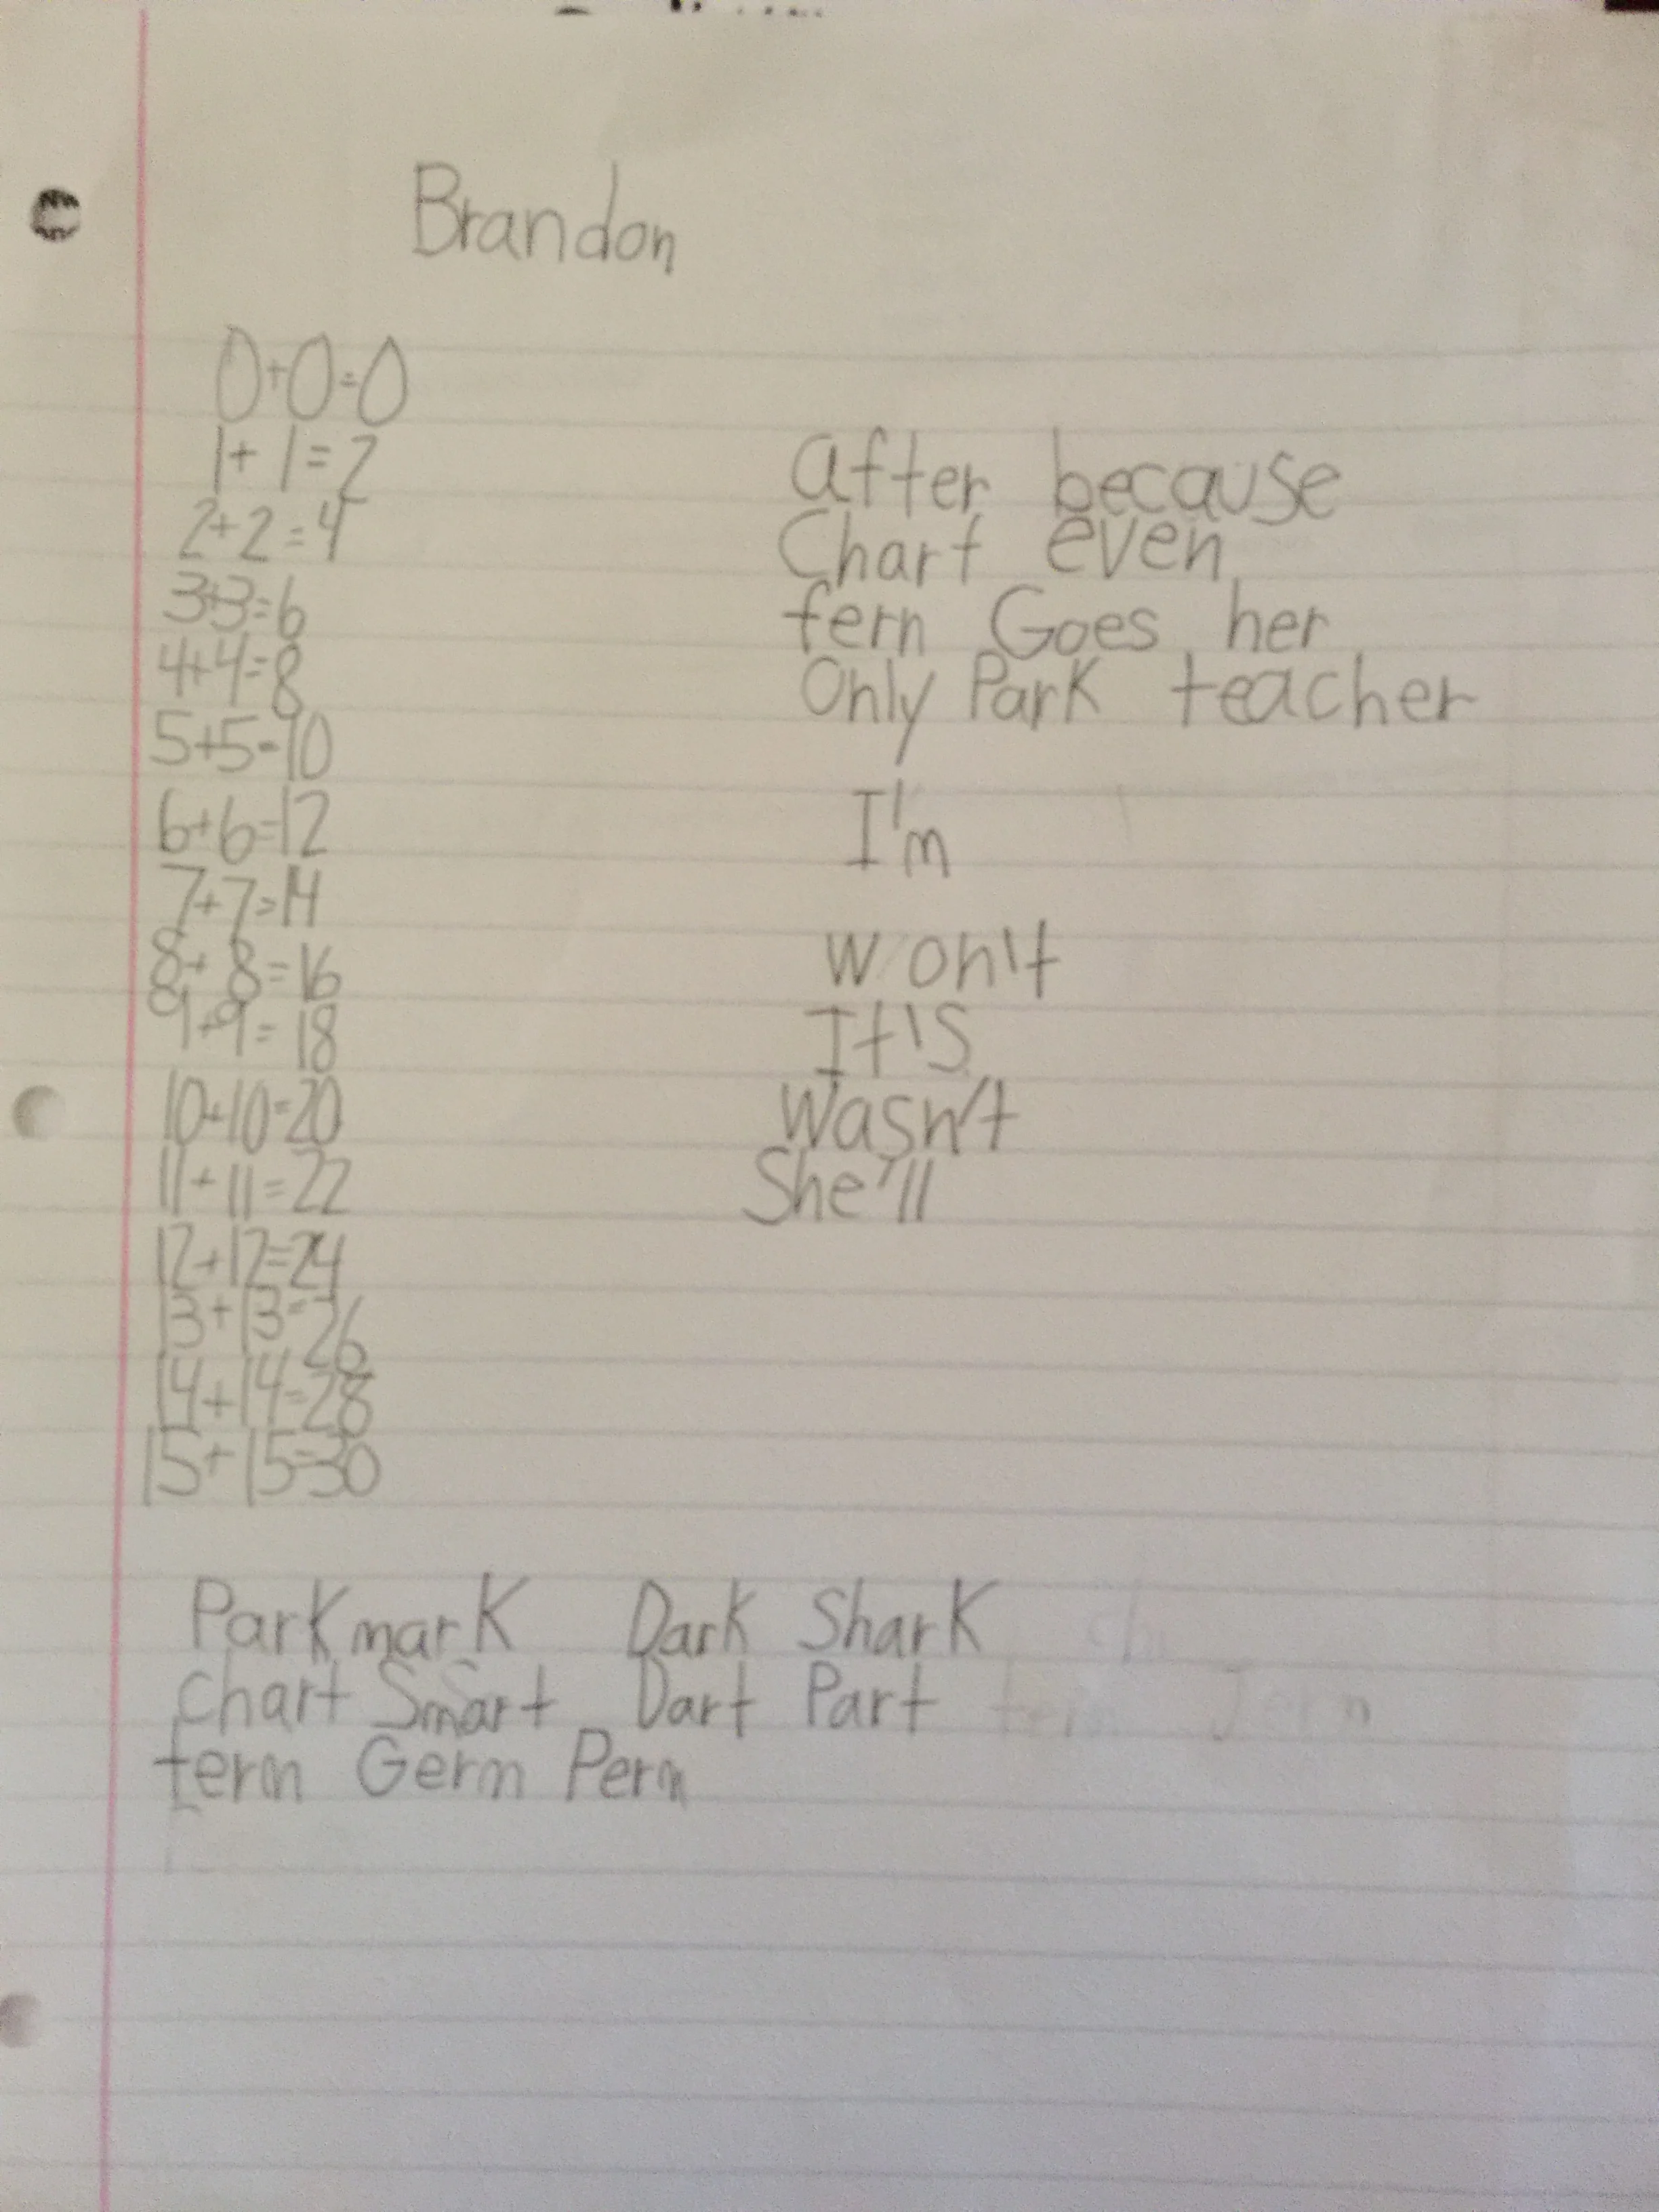 Brandon
0+0=0
1+1=2
2+2=4
3+3=6
4+4=8
5+5=10
6+6=12
7+7=14
8+8=16
9+9=18
10+10=20
11+11=22
12+12=24
13+13=26
14+14=28
15+15=30
after because
Chart even
fern Goes her
Only Park teacher
I'm
won't
It's
wasn't
She'll
Park mark Dark Shark
chart Smart Dart Part
term Germ Perm